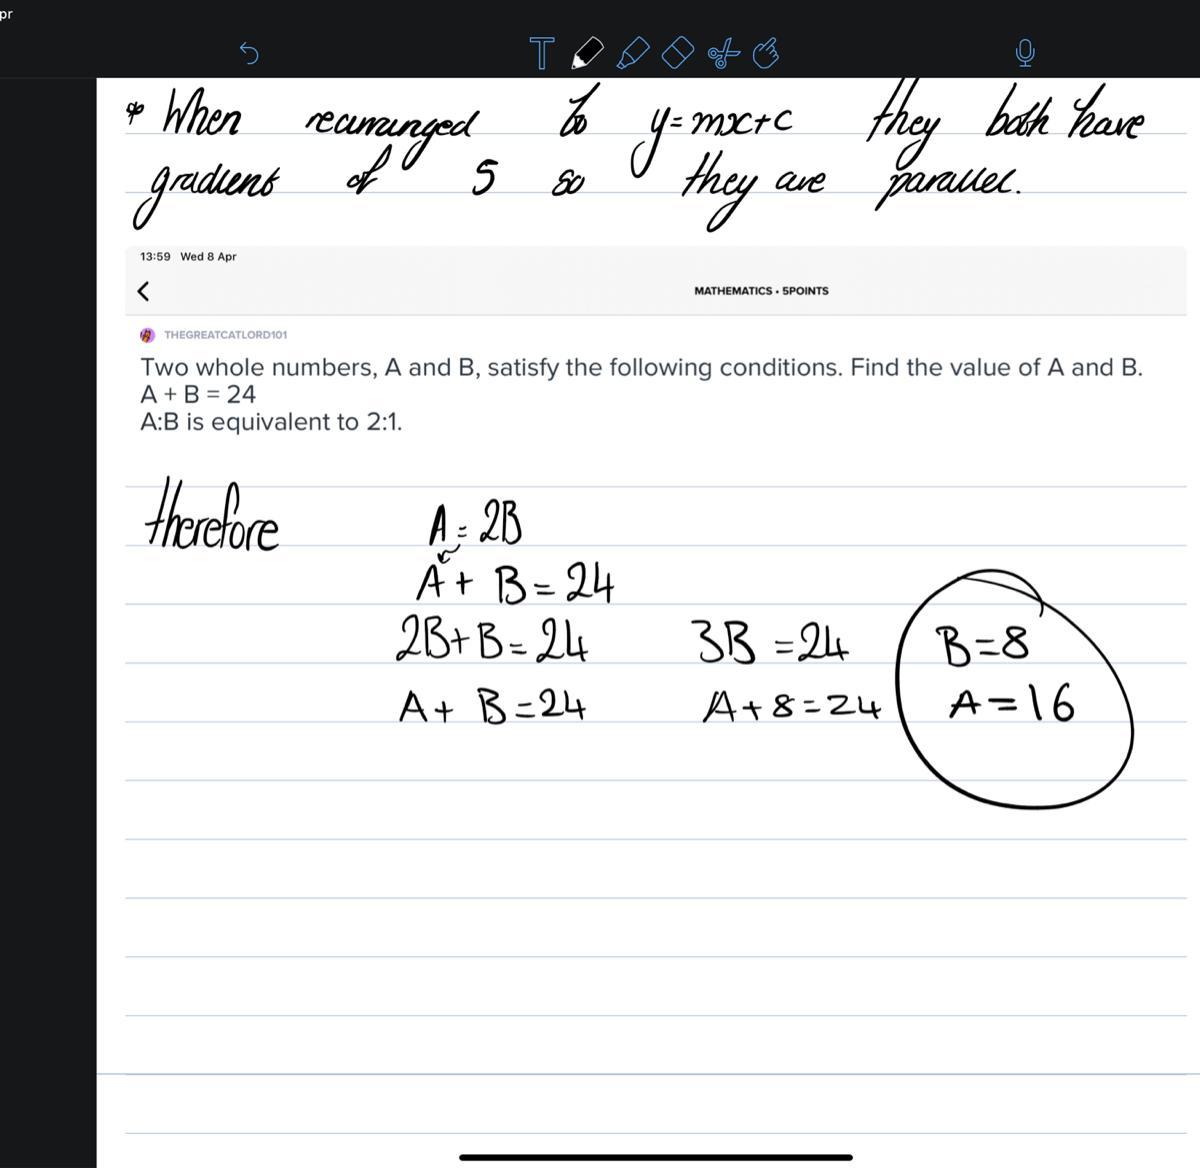 pr
T
* When rearranged to y=mx+c they both have
gradient of 5 so they are parallel.
13:59 Wed 8 Apr
<
MATHEMATICS • 5POINTS
THEGREATCATLORD101
Two whole numbers, A and B, satisfy the following conditions. Find the value of A and B.
A + B = 24
A:B is equivalent to 2:1.
therefore A = 2B
A + B = 24
2B + B = 24 3B = 24 B=8
A + B = 24 A+8=24 A=16